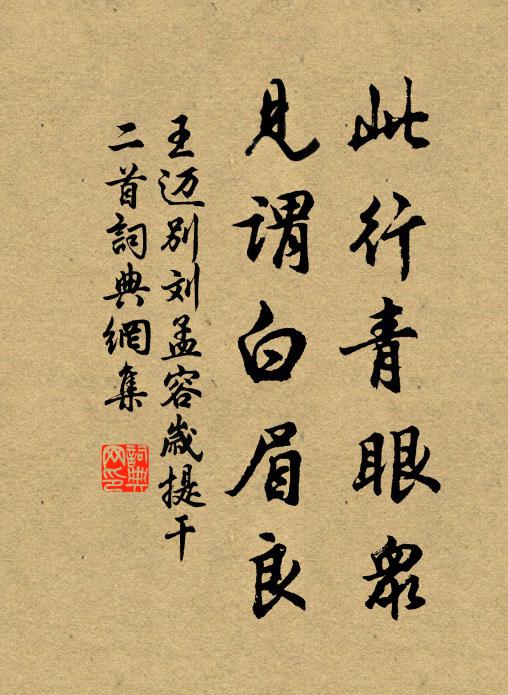 此行青眼衆
見謂白眉良
王迈别刘孟容葳提干
二首詞典網集
詞典網印